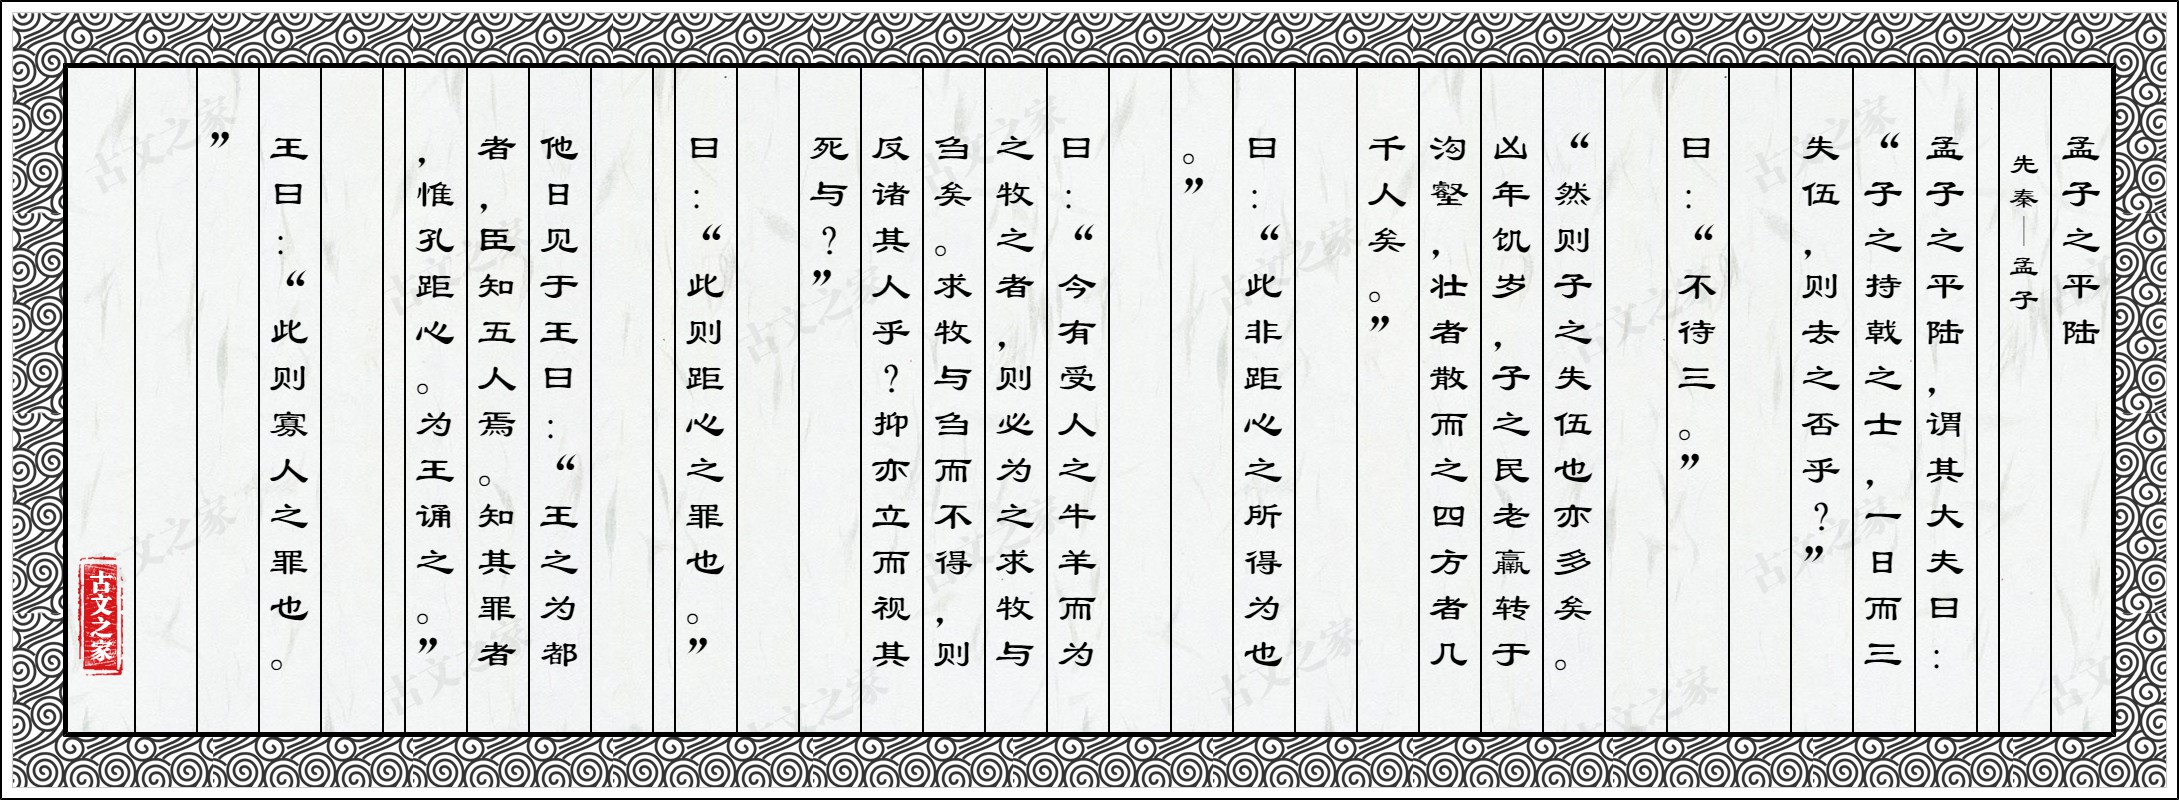 孟子之平陆
先秦—孟子
孟子之平陆，谓其大夫曰：
“子之持戟之士，一日而三
失伍，则去之否乎？”
曰：“不待三。”
“然则子之失伍也亦多矣。
凶年饥岁，子之民老羸转于
沟壑，壮者散而之四方者几
千人矣。”
曰：“此非距心之所得为也
。”
曰：“今有受人之牛羊而为
之牧之者，则必为之求牧与
刍矣。求牧与刍而不得，则
反诸其人乎？抑亦立而视其
死与？”
曰：“此则距心之罪也。”
他日见于王曰：“王之为都
者，臣知五人焉。知其罪者
，惟孔距心。为王诵之。”
王曰：“此则寡人之罪也。
”
古文之家